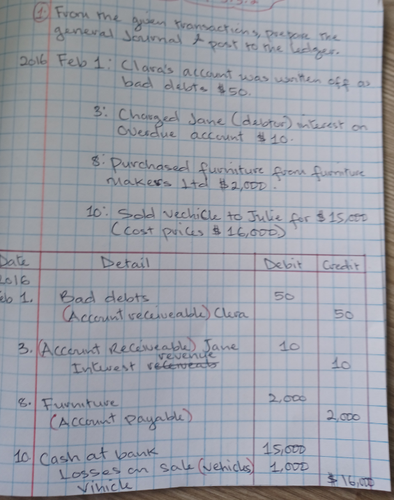 ① From the given transactions, prepare the
general Journal & post to the ledger.
2016 Feb 1: Clara's account was written off as
bad debts $50.
3: Charged Jane (debtor) interest on
overdue account $10.
8: Purchased furniture from furniture
Makers Ltd $2,000.
10: Sold vechicle to Julie for $15,000
(cost prices $16,000)
Date Detail Debit Credit
2016
eb 1. Bad debts 50
(Account receiveable) Clera 50
3. (Account Receweable) Jane 10
Interest revenue 10
8. Furniture 2,000
(Account payable) 2,000
10. Cash at bank 15,000
Losses on sale (vehicles) 1,000
Vihicle $16,000